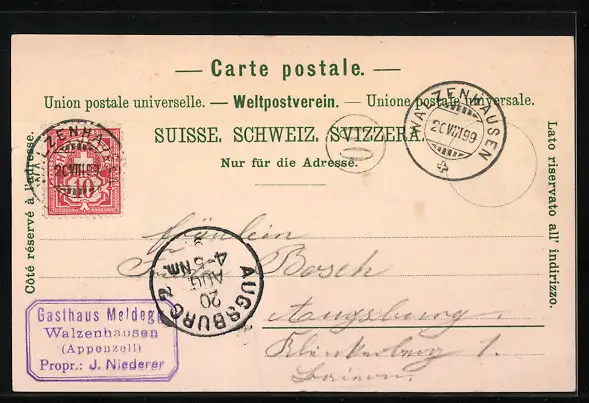 — Carte postale. —
Union postale universelle. — Weltpostverein. — Unione postale universale.
SUISSE. SCHWEIZ. SVIZZERA.
Nur für die Adresse.
Côté réservé à l'adresse.
Lato riservato all' indirizzo.
WALZENHAUSEN
20 VIII 99
WALZENHAUSEN
20 VIII 99
10
Fräulein
Bosch
Augsburg.
1.
AUGSBURG 2
20
AUG
4-5 Nm.
Gasthaus Meldegg
Walzenhausen
(Appenzell)
Propr.: J. Niederer